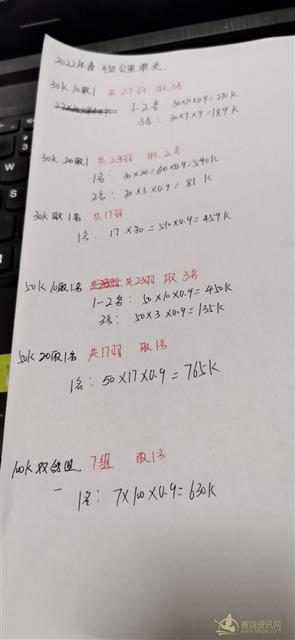 2022年春 450公里单关
30K 10取1 共27羽 取3名
1-2名: 30×10×0.9=270K
3名: 30×7×9=189K
30K 20取1 共23羽 取2名
1名: 30×20=600×0.9=540K
2名: 30×3×0.9=81K
30K取1名 共17羽
1名: 17×30=510×0.9=459K
50K 10取1名 共23羽 取3名
1-2名: 50×10×0.9=450K
3名: 50×3×0.9=135K
50K 20取1名 共17羽 取1名
1名: 50×17×0.9=765K
100K双鸽 7组 取1名
1名: 7×100×0.9=630K
赛鸽资讯网